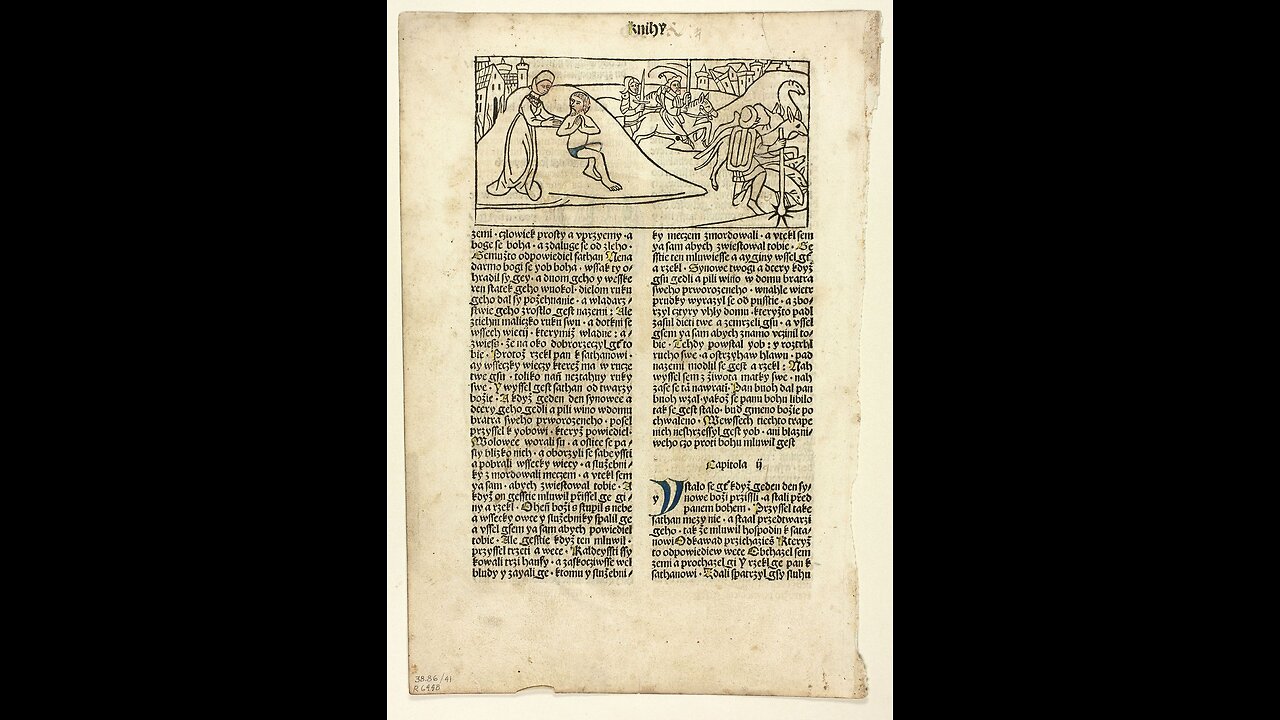 knihy
zemi · czlowiek prosty a vprzymy · a
boge se boha · a zdaluge se od zleho ·
Gemuzto odpowiediel sathan Nena
darmo bogi se yob boha · wssak ty o/
hradil sy gey · a duom geho y wesske
ren statek geho wnokol · dielom ruku
geho dal sy pozehnanie · a wladarz/
stwie geho zrostlo gest nazemi : Ale
ztiehni maliczko ruku swu · a dotkni se
wssech wietij · kterymiz wladne : a/
zwiesy · že na oko dobrorzeczyl gt to
bie · Protož rzekl pan k sathanowi ·
ay wsseczky wieczy kterež ma w rucze
twe gsu · toliko nań neztahuy ruky
swe · Y wyssel gest sathan od twarzy
božie · A když geden den synowee a
dcery geho gedli a pili wino wdomu
bratra sweho prworozeneho · posel
przyssel k yobowi · kterž powiediel ·
Wolowee worali su · a oslice se pa/
sly blizko nich · a oborzyli se sabeyssti
a pobrali wssecky wiecy · a služebni/
ky z mordowali meczem · a vtekl sem
ya sam · abych zwiestowal tobie · A
když on gesstie mluwil přissel ge gi/
ny a rzekl · Oheň boži s stupil s nebe
a wssecky owce y služebniky spalil ge
a vssel gsem ya sam abych powiediel
tobie · Ale gesstie když ten mluwil ·
przyssel trzeti a wece · Kaldeyssti ssy
kowali trzi haufy · a zaskocziwsse wel
bludy y zayali ge · ktomu y služebni/
ky meczem zmordowali · a vtekl sem
ya sam abych zwiestowal tobie · Ge
sstie ten mluwiesse a ay giny wssel gt
a rzekl · Synowe twogi a dcery když
gsu gedli a pili wino w domu bratra
sweho prworozeneho · wnahle wietr
prudky wyrazyl se od pusstie · a zbo/
rzyl cztyry vhly domu · kteryžto padl
zasul dieti twe a zemrzeli gsu · a vssel
gsem ya sam abych znamo vczinil to/
bie · Tehdy powstal yob : y roztrhl
rucho swe · a ostrzyhaw hlawu · pad
nazemi modlil se gest a rzekl : Nah
wyssel sem z života matky swe · nah
zase se tā nawrati · Pan buoh dal pan
buoh wzal · yakož se panu bohu libilo
tak se gest stalo · bud gmeno božie po
chwaleno · Wewssech tiechto trape
nich neshrzessyl gest yob · ani blazni/
weho czo proti bohu mluwil gest
Capitola ij
Vstalo se gt když geden den sy/
y nowe boži přissli · a stali před
panem bohem · Przyssel take
sathan mezy nie · a staal przedtwarzi
geho · tak že mluwil hospodin k sata/
nowi Odkawad przichazieš Kteryž
to odpowiediew wece Obchazel sem
zemi a prochazel gi Y rzekl ge pan k
sathanowi · Zdali spatrzyl gsy sluhu
38.86/41
R6448